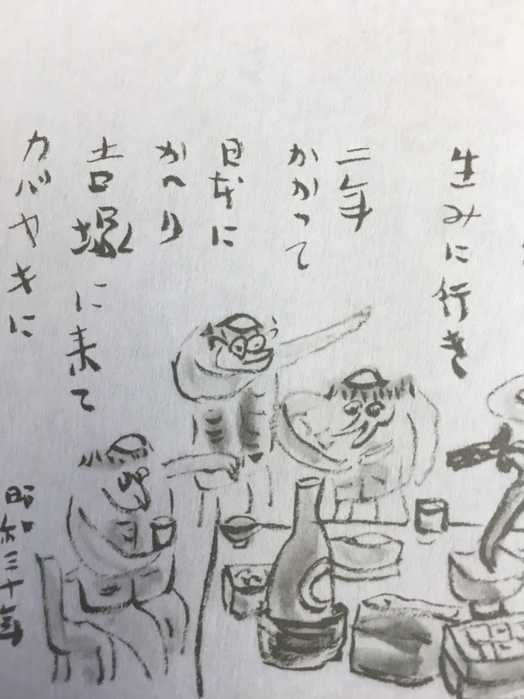 生みに行き
二年
かかって
日本に
かへり
吉塚に来て
カバヤキに
昭和三十年